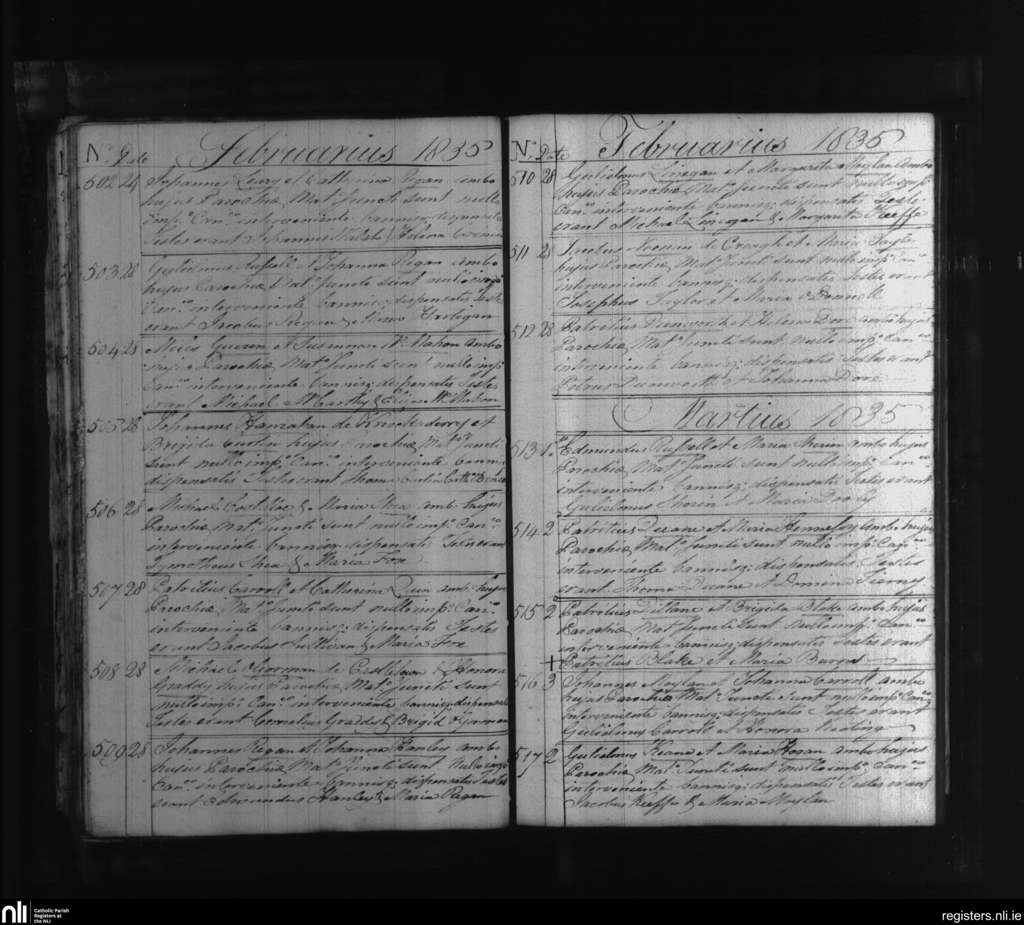 No. Date Februarius 1835
502 24 Johannes Leary et Catherina Regan ambo
hujus Parochiæ Mat.º Juncti sunt nullo
imp.º Can.co interveniente bannisq: dispensatis
Testes erant Johannes Walsh & Helena
503 28 Gulielmus Russell et Johanna Regan ambo
hujus Parochiæ Mat.º Juncti sunt nullo imp.º
Can.co interveniente bannisq: dispensatis Testes
erant Jacobus Regan & Maria Hartigan
504 28 Guerin et Susanna Mc Mahon ambo
hujus Parochiæ Mat.º Juncti sunt nullo imp.º
Can.co interveniente bannisq: dispensatis Testes
erant Michael McCarthy & Eliza McMahon
505 28 Johannes Hanrahan de Knockaderry et
Brigida Curtin hujus Parochiæ Mat.º Juncti
sunt nullo imp.º Can.co interveniente bannisq:
dispensatis Testes erant Thomas Curtin
506 28 Michael & Maria Shea ambo hujus
Parochiæ Mat.º Juncti sunt nullo imp.º Can.co
interveniente bannisq: dispensatis Testes erant
Tymotheus Shea & Maria Fox
507 28 Patritius Carroll et Catherina Quin ambo hujus
Parochiæ Mat.º Juncti sunt nullo imp.º Can.co
interveniente bannisq: dispensatis Testes
erant Jacobus Sullivan & Maria Fox
508 28 Michael Gorman de Castletown & Honora
Graddy hujus Parochiæ Mat.º Juncti sunt
nullo imp.º Can.co interveniente bannisq: dispensatis
Testes erant Cornelius Graddy & Brigid Gorman
509 28 Johannes Regan et Johanna Hanley ambo
hujus Parochiæ Mat.º Juncti sunt nullo imp.º
Can.co interveniente bannisq: dispensatis Testes
erant Edmundus Hanley & Maria Regan
No. Date Februarius 1835
510 28 Gulielmus Linegan et Margarita Moylan ambo
hujus Parochiæ Mat.º Juncti sunt nullo imp.º
Can.co interveniente bannisq: dispensatis Testes
erant Michael Linegan & Margarita Keeffe
511 28 de Creagh et Maria Taylor
hujus Parochiæ Mat.º Juncti sunt nullo imp.º Can.co
interveniente bannisq: dispensatis Testes erant
Josephus Taylor et Maria O Donnell
512 28 Patritius Dunworth et Helena Dore ambo hujus
Parochiæ Mat.º Juncti sunt nullo imp.º Can.co
interveniente bannisq: dispensatis Testes erant
Petrus Dunworth & Johanna Dore
Martius 1835
513 1º Edmundus Russell et Maria Sheein ambo hujus
Parochiæ Mat.º Juncti sunt nullo imp.º Can.co
interveniente bannisq: dispensatis Testes erant
Gulielmus Sheein & Maria
514 2 Patritius Duane et Maria Hennessy ambo hujus
Parochiæ Mat.º Juncti sunt nullo imp.º Can.co
interveniente bannisq: dispensatis Testes
erant Thomas Duane et Tierny
515 2 Patritius Dillane et Brigida Blake ambo hujus
Parochiæ Mat.º Juncti sunt nullo imp.º Can.co
interveniente bannisq: dispensatis Testes erant
Patritius Blake et Maria Burgess
516 3 Johannes Moylan et Johanna Carroll ambo
hujus Parochiæ Mat.º Juncti sunt nullo imp.º Can.co
interveniente bannisq: dispensatis Testes erant
Gulielmus Carroll et Honora Keating
517 2 Gulielmus Keane et Maria Hogan ambo hujus
Parochiæ Mat.º Juncti sunt nullo imp.º Can.co
interveniente bannisq: dispensatis Testes erant
Jacobus Keeffe & Maria Moylan
nli Catholic Parish
Registers at
the NLI
registers.nli.ie